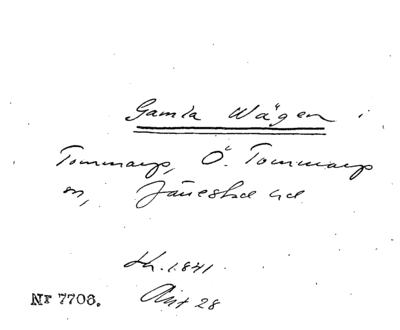 Gamla Wägen i
Tommarp, Ö. Tommarps
sn, Järrestad hd
Lh. 1841.
Akt 28
Nr 7706.